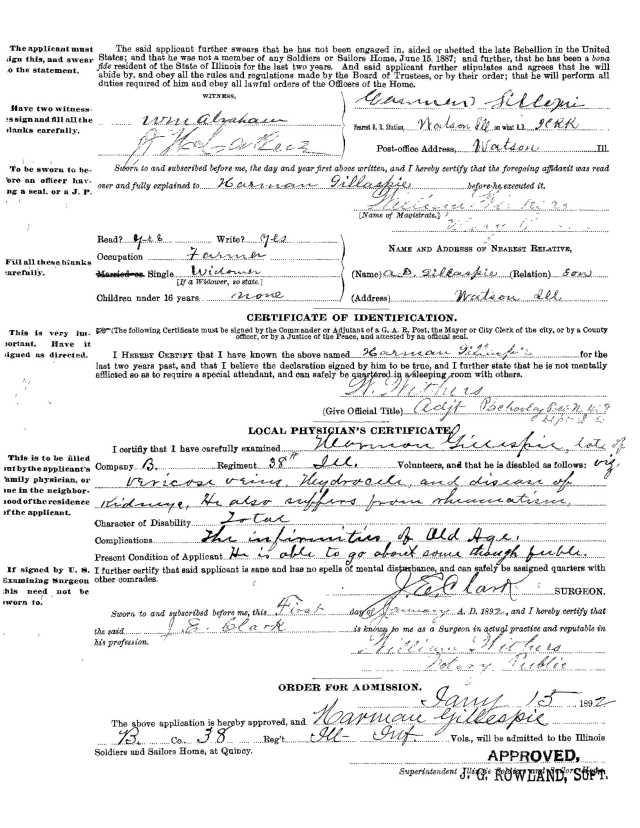 The applicant must
sign this, and swear
to the statement.
The said applicant further swears that he has not been engaged in, aided or abetted the late Rebellion in the United
States; and that he was not a member of any Soldiers or Sailors Home, June 15, 1887; and further, that he has been a bona
fide resident of the State of Illinois for the last two years. And said applicant further stipulates and agrees that he will
abide by, and obey all the rules and regulations made by the Board of Trustees, or by their order; that he will perform all
duties required of him and obey all lawful orders of the Officers of the Home.
WITNESS,
Have two witness-
es sign and fill all the
blanks carefully.
Harmen Gillespie
Wm Abraham
Nearest R. R. Station, Watson Ill on what R.R. ICRR
Post-office Address, Watson Ill.
To be sworn to be-
fore an officer hav-
ing a seal, or a J. P.
Sworn to and subscribed before me, the day and year first above written, and I hereby certify that the foregoing affidavit was read
over and fully explained to Harman Gillaspie before he executed it.
William
[Name of Magistrate.]
Read? yes Write? yes
Occupation Farmer
NAME AND ADDRESS OF NEAREST RELATIVE,
Fill all these blanks
carefully.
Married or Single Widower
[If a Widower, so state.]
(Name) A.D. Gillaspie (Relation) Son
Children under 16 years none
(Address) Watson Ill.
CERTIFICATE OF IDENTIFICATION.
This is very im-
portant. Have it
signed as directed.
(The following Certificate must be signed by the Commander or Adjutant of a G. A. R. Post, the Mayor or City Clerk of the city, or by a County
officer, or by a Justice of the Peace, and attested by an official seal.
I HEREBY CERTIFY that I have known the above named Harman Gillaspie for the
last two years past, and that I believe the declaration signed by him to be true, and I further state that he is not mentally
afflicted so as to require a special attendant, and can safely be quartered in a sleeping room with others.
W. Withers
(Give Official Title) Adjt
LOCAL PHYSICIAN'S CERTIFICATE,
This is to be filled
out by the applicant's
family physician, or
one in the neighbor-
hood of the residence
of the applicant.
I certify that I have carefully examined Harman Gillespie, late of
Company B. Regiment 38th Ill. Volunteers, and that he is disabled as follows: viz,
Vericose veins, Hydrocele, and disease of
Kidneys, He also suffers from rheumatism,
Character of Disability Total
Complications The infirmities of Old Age.
Present Condition of Applicant He is able to go about some though feeble.
If signed by U. S.
Examining Surgeon
this need not be
sworn to.
I further certify that said applicant is sane and has no spells of mental disturbance, and can safely be assigned quarters with
other comrades.
J. E. Clark SURGEON.
Sworn to and subscribed before me, this First day of January A. D. 1892, and I hereby certify that
the said J. E. Clark is known to me as a Surgeon in actual practice and reputable in
his profession.
William Withers
Notary Public
ORDER FOR ADMISSION.
Jany 15 1892
The above application is hereby approved, and Harman Gillespie
B. Co. 38 Reg't Ill Inf Vols., will be admitted to the Illinois
Soldiers and Sailors Home, at Quincy.
APPROVED,
J. G. ROWLAND, SUPT.
Superintendent Illinois Soldiers and Sailors Home